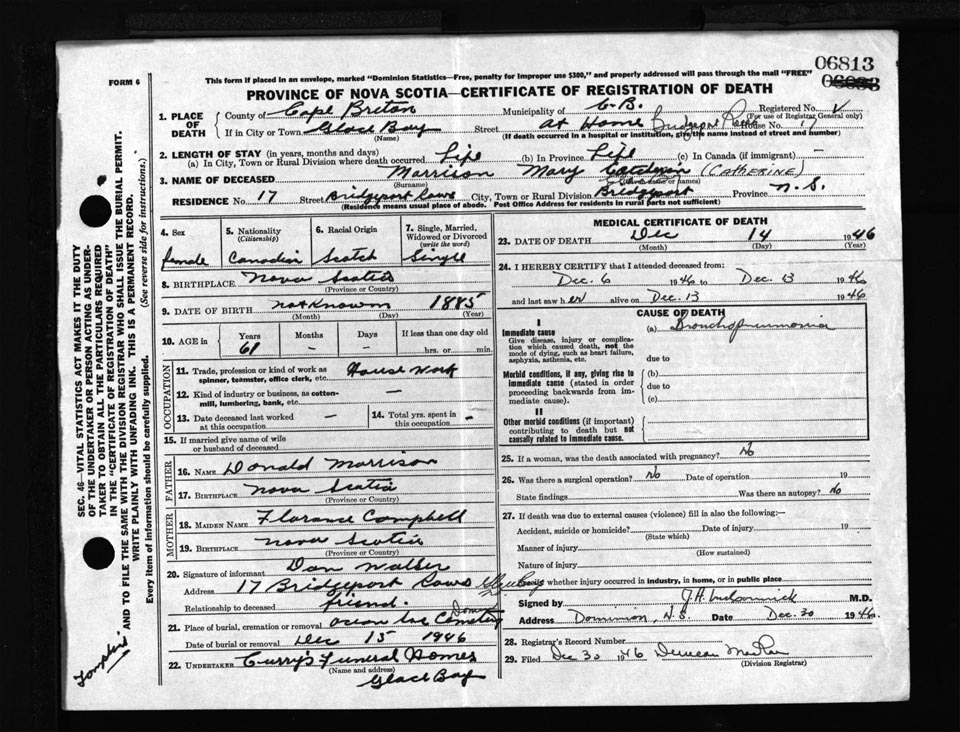 06813
FORM 6
This form if placed in an envelope, marked "Dominion Statistics—Free, penalty for improper use $300," and properly addressed will pass through the mail "FREE"
PROVINCE OF NOVA SCOTIA—CERTIFICATE OF REGISTRATION OF DEATH
1. PLACE OF DEATH
County of Cape Breton Municipality of C.B. Registered No.
(For use of Registrar General only)
If in City or Town Glace Bay Street At Home House No. 17
(Name) (If death occurred in a hospital or institution, give the name instead of street and number)
2. LENGTH OF STAY (in years, months and days)
(a) In City, Town or Rural Division where death occurred Life (b) In Province Life (c) In Canada (if immigrant) —
3. NAME OF DECEASED Morrison Mary (CATHERINE)
(Surname)
RESIDENCE No. 17 Street Bridgeport Rows City, Town or Rural Division Bridgeport Province N.S.
(Residence means usual place of abode. Post Office Address for residents in rural parts not sufficient)
4. Sex female
5. Nationality (Citizenship) Canadian
6. Racial Origin Scotch
7. Single, Married, Widowed or Divorced (write the word) Single
8. BIRTHPLACE Nova Scotia
(Province or Country)
9. DATE OF BIRTH not known 1885
(Month) (Day) (Year)
10. AGE in Years 61 Months — Days If less than one day old hrs. or min.
OCCUPATION
11. Trade, profession or kind of work as spinner, teamster, office clerk, etc. House Work
12. Kind of industry or business, as cotton-mill, lumbering, bank, etc. —
13. Date deceased last worked at this occupation —
14. Total yrs. spent in this occupation -
15. If married give name of wife or husband of deceased
FATHER
16. NAME Donald Morrison
17. BIRTHPLACE Nova Scotia
(Province or Country)
MOTHER
18. MAIDEN NAME Florance Campbell
19. BIRTHPLACE Nova Scotia
(Province or Country)
20. Signature of informant Dan Walker
Address 17 Bridgeport Rows
Relationship to deceased friend.
21. Place of burial, cremation or removal Cemetery
Date of burial or removal Dec 15 1946
22. UNDERTAKER Curry's Funeral Homes
(Name and address)
Glace Bay
MEDICAL CERTIFICATE OF DEATH
23. DATE OF DEATH Dec 14 1946
(Month) (Day) (Year)
24. I HEREBY CERTIFY that I attended deceased from:
Dec. 6 1946 to Dec. 13 1946
and last saw her alive on Dec. 13 1946
CAUSE OF DEATH
I
Immediate cause
Give disease, injury or complication which caused death, not the mode of dying, such as heart failure, asphyxia, asthenia, etc.
(a) Bronchopneumonia
due to
Morbid conditions, if any, giving rise to immediate cause (stated in order proceeding backwards from immediate cause).
(b)
due to
(c)
II
Other morbid conditions (if important) contributing to death but not causally related to immediate cause.
25. If a woman, was the death associated with pregnancy? No
26. Was there a surgical operation? No Date of operation 19
State findings Was there an autopsy? No
27. If death was due to external causes (violence) fill in also the following:—
Accident, suicide or homicide? Date of injury 19
(State which)
Manner of injury
(How sustained)
Nature of injury
whether injury occurred in industry, in home, or in public place
Signed by J.H. McCormick M.D.
Address Dominion, N.S. Date Dec. 30 1946
28. Registrar's Record Number
29. Filed Dec 30 1946 Duncan
(Division Registrar)
SEC. 46—VITAL STATISTICS ACT MAKES IT THE DUTY
OF THE UNDERTAKER OR PERSON ACTING AS UNDER-
TAKER TO OBTAIN ALL THE PARTICULARS REQUIRED
IN THE "CERTIFICATE OF REGISTRATION OF DEATH"
AND TO FILE THE SAME WITH THE DIVISION REGISTRAR WHO SHALL ISSUE THE BURIAL PERMIT.
WRITE PLAINLY WITH UNFADING INK. THIS IS A PERMANENT RECORD.
Every item of information should be carefully supplied. (See reverse side for instructions.)